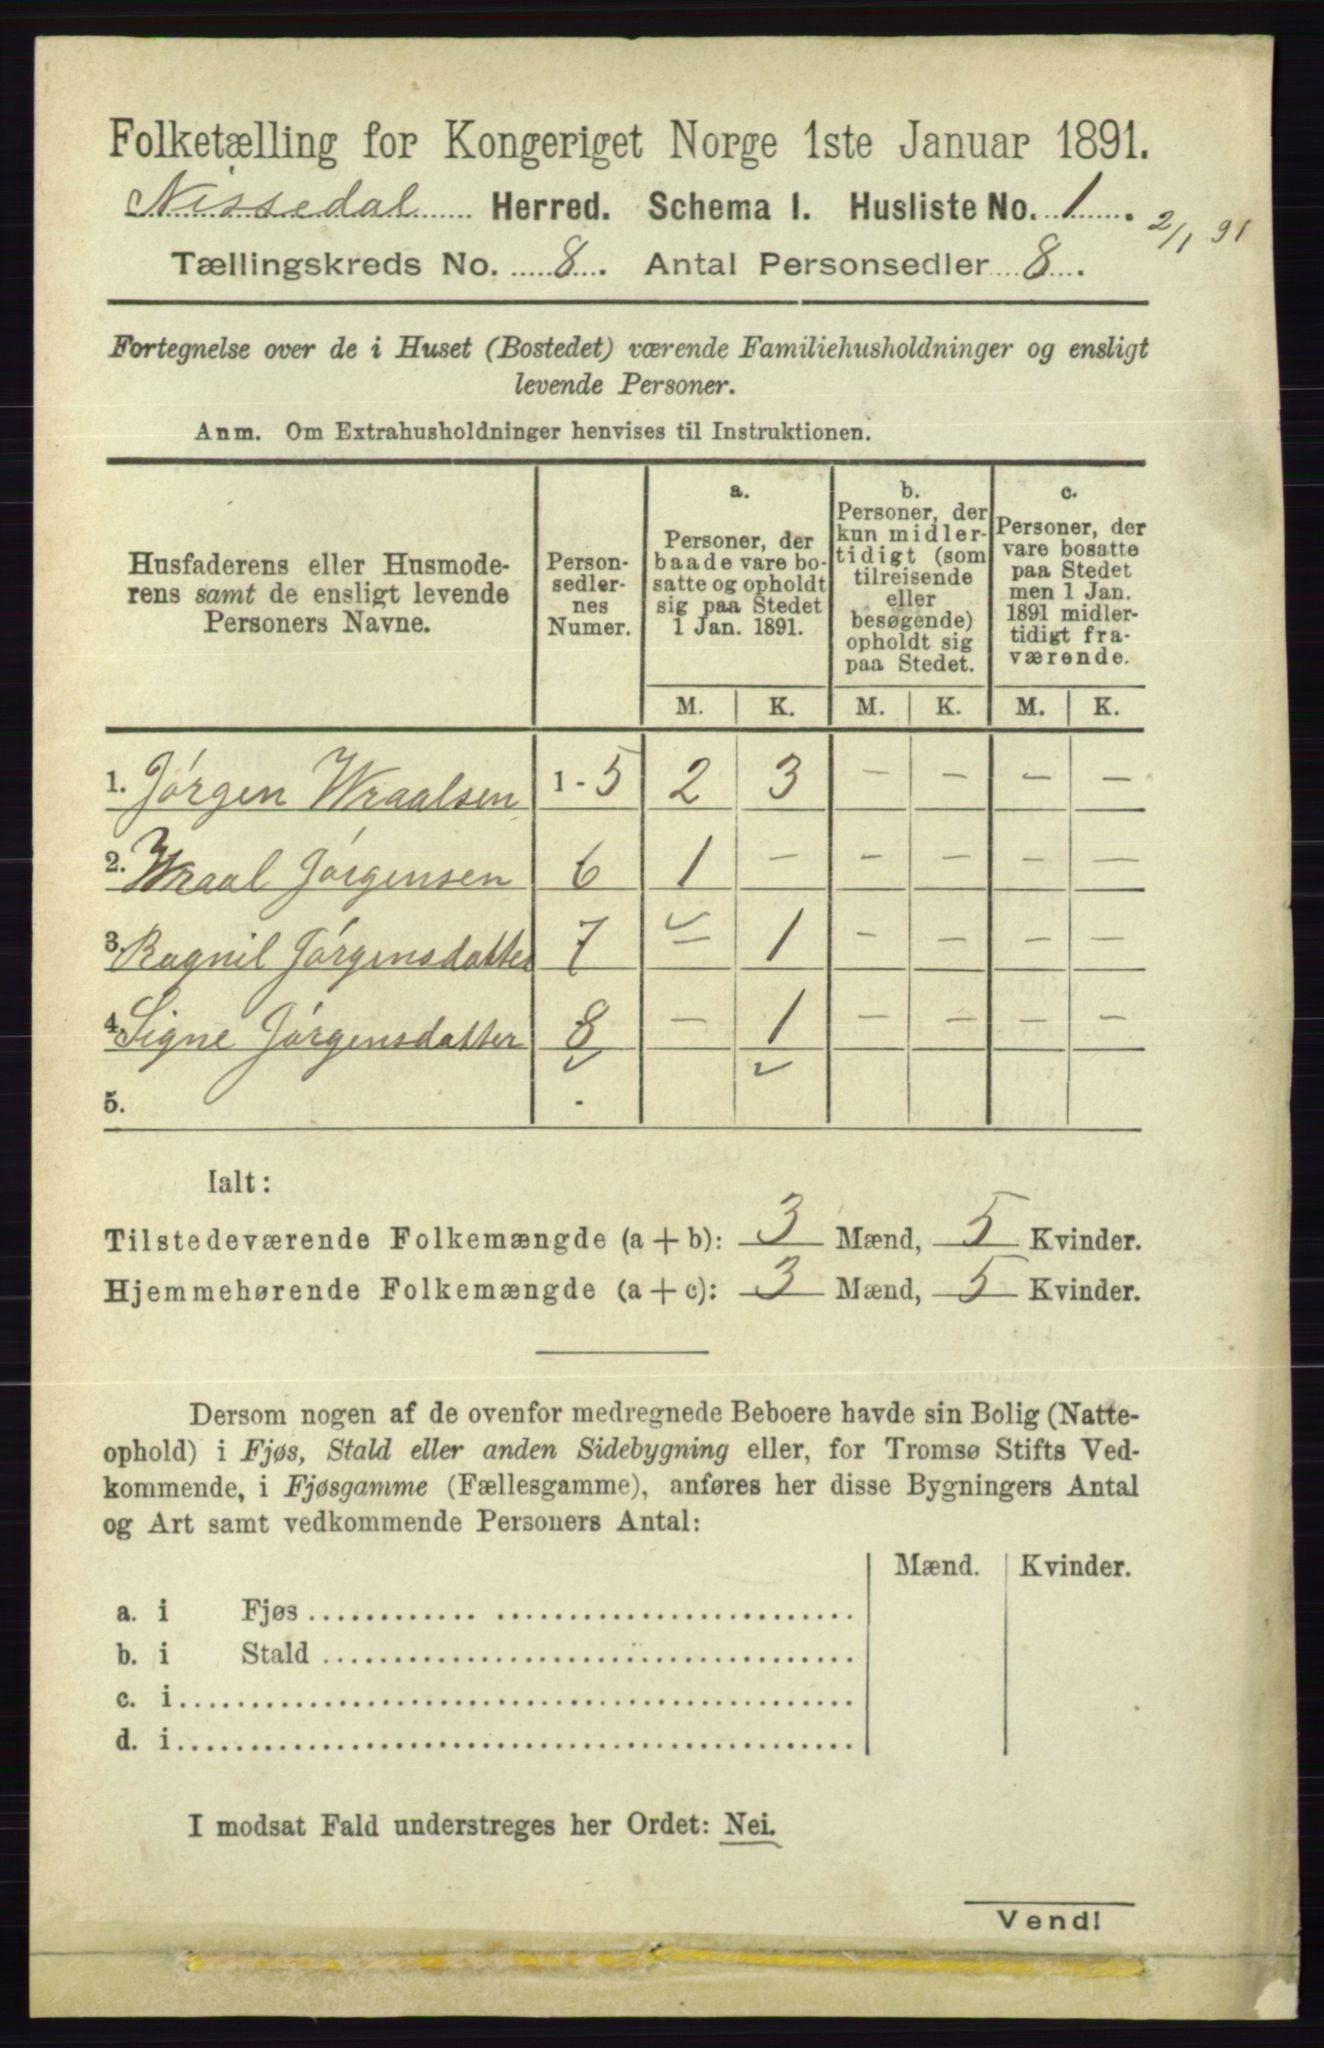 Folketælling for Kongeriget Norge 1ste Januar 1891.
Nissedal Herred. Schema I. Husliste No. 1.
2/1 91
Tællingskreds No. 8. Antal Personsedler 8.
Fortegnelse over de i Huset (Bostedet) værende Familiehusholdninger og ensligt
levende Personer.
Anm. Om Extrahusholdninger henvises til Instruktionen.
Husfaderens eller Husmode-
rens samt de ensligt levende
Personers Navne.
Person-
sedler-
nes
Numer.
a.
Personer, der
baade vare bo-
satte og opholdt
sig paa Stedet
1 Jan. 1891.
b.
Personer, der
kun midler-
tidigt (som
tilreisende
eller
besøgende)
opholdt sig
paa Stedet.
c.
Personer, der
vare bosatte
paa Stedet
men 1 Jan.
1891 midler-
tidigt fra-
værende.
M. K. M. K. M. K.
1. Jørgen Wraalsen 1 - 5 2 3 — — — —
2. Wraal Jørgensen 6 1 — — — — —
3. Ragnil Jørgensdatter 7 — 1 — — — —
4. Signe Jørgensdatter 8 — 1 — — — —
5. -
Ialt:
Tilstedeværende Folkemængde (a + b): 3 Mænd, 5 Kvinder.
Hjemmehørende Folkemængde (a + c): 3 Mænd, 5 Kvinder.
Dersom nogen af de ovenfor medregnede Beboere havde sin Bolig (Natte-
ophold) i Fjøs, Stald eller anden Sidebygning eller, for Tromsø Stifts Ved-
kommende, i Fjøsgamme (Fællesgamme), anføres her disse Bygningers Antal
og Art samt vedkommende Personers Antal:
Mænd. Kvinder.
a. i Fjøs
b. i Stald
c. i
d. i
I modsat Fald understreges her Ordet: Nei.
Vend!